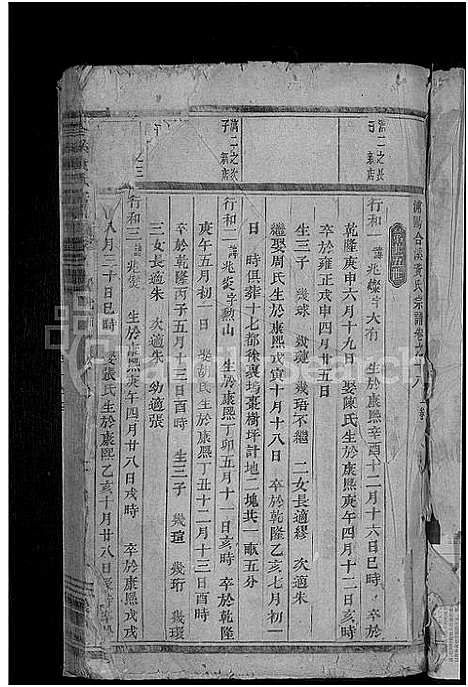 浦陽合溪黄氏宗譜卷之十八
行和一 諱兆燦字大有 生於康熙辛酉十二月十六日巳時 卒於
乾隆庚申六月十九日 娶陳氏生於康熙庚午四月十二日亥時
卒於雍正戊申四月廿五日
生三子 幾球 幾璉 幾珞不繼 二女長適繆 次適朱
繼娶周氏生於康熙戊寅十月十八日 卒於乾隆乙亥七月初一
日 時俱葬十七都徐裏塢棗樹坪計地二塊共一畝五分
行和二 諱兆炎字勲山 生於康熙丁卯五月十一日亥時 卒於乾隆
庚午五月初一日 娶胡氏生於康熙丁丑十二月十三日酉時
卒於乾隆丙子五月十三日酉時 生三子 幾瑄 幾珩 幾環
三女長適朱 次適朱 幼適張
行和三 諱兆 生於康熙庚午四月廿八日戌時 卒於康熙戊戌
八月三十日巳時 娶張氏生於康熙乙亥十月廿八日
滿二之長
子 新店
滿二之次
子 新店
之三